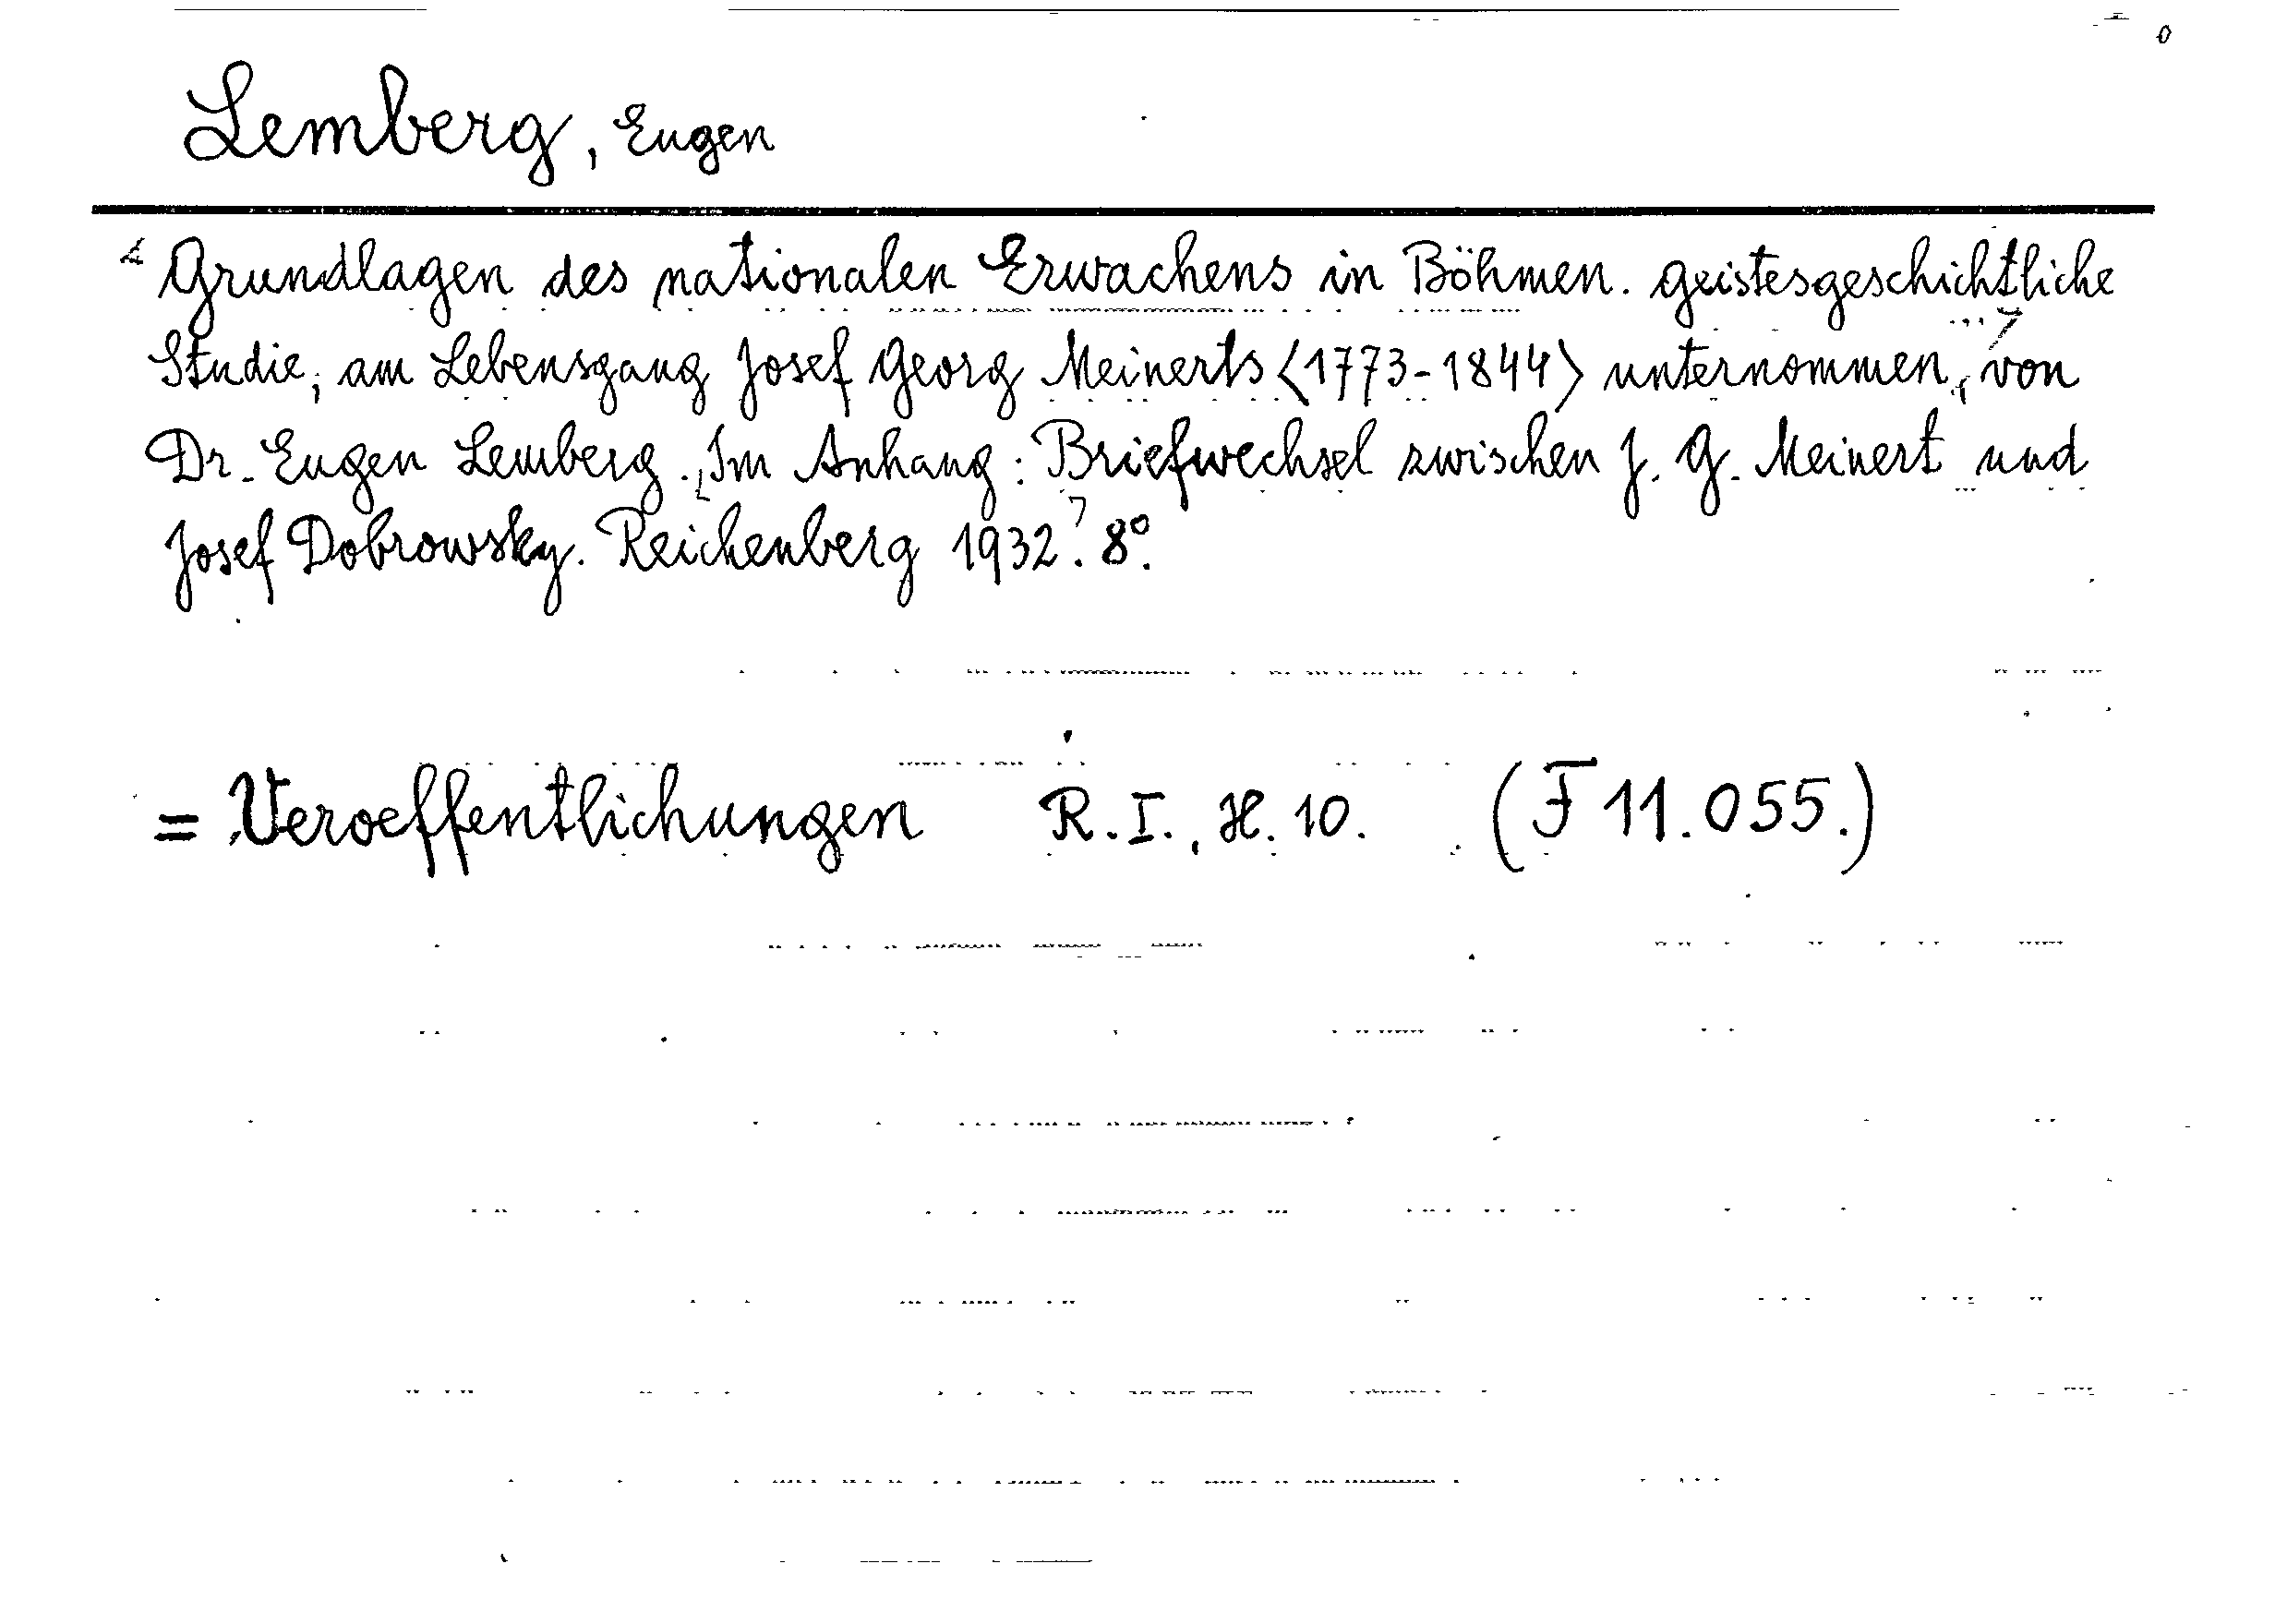 Lemberg, Eugen
Grundlagen des nationalen Erwachens in Böhmen. Geistesgeschichtliche
Studie, am Lebensgang Josef Georg Meinerts <1773-1844> unternommen, von
Dr. Eugen Lemberg. Im Anhang: Briefwechsel zwischen J. G. Meinert und
Josef Dobrowsky. Reichenberg 1932. 8°.
= Veroeffentlichungen R. I., H. 10. (F 11.055.)